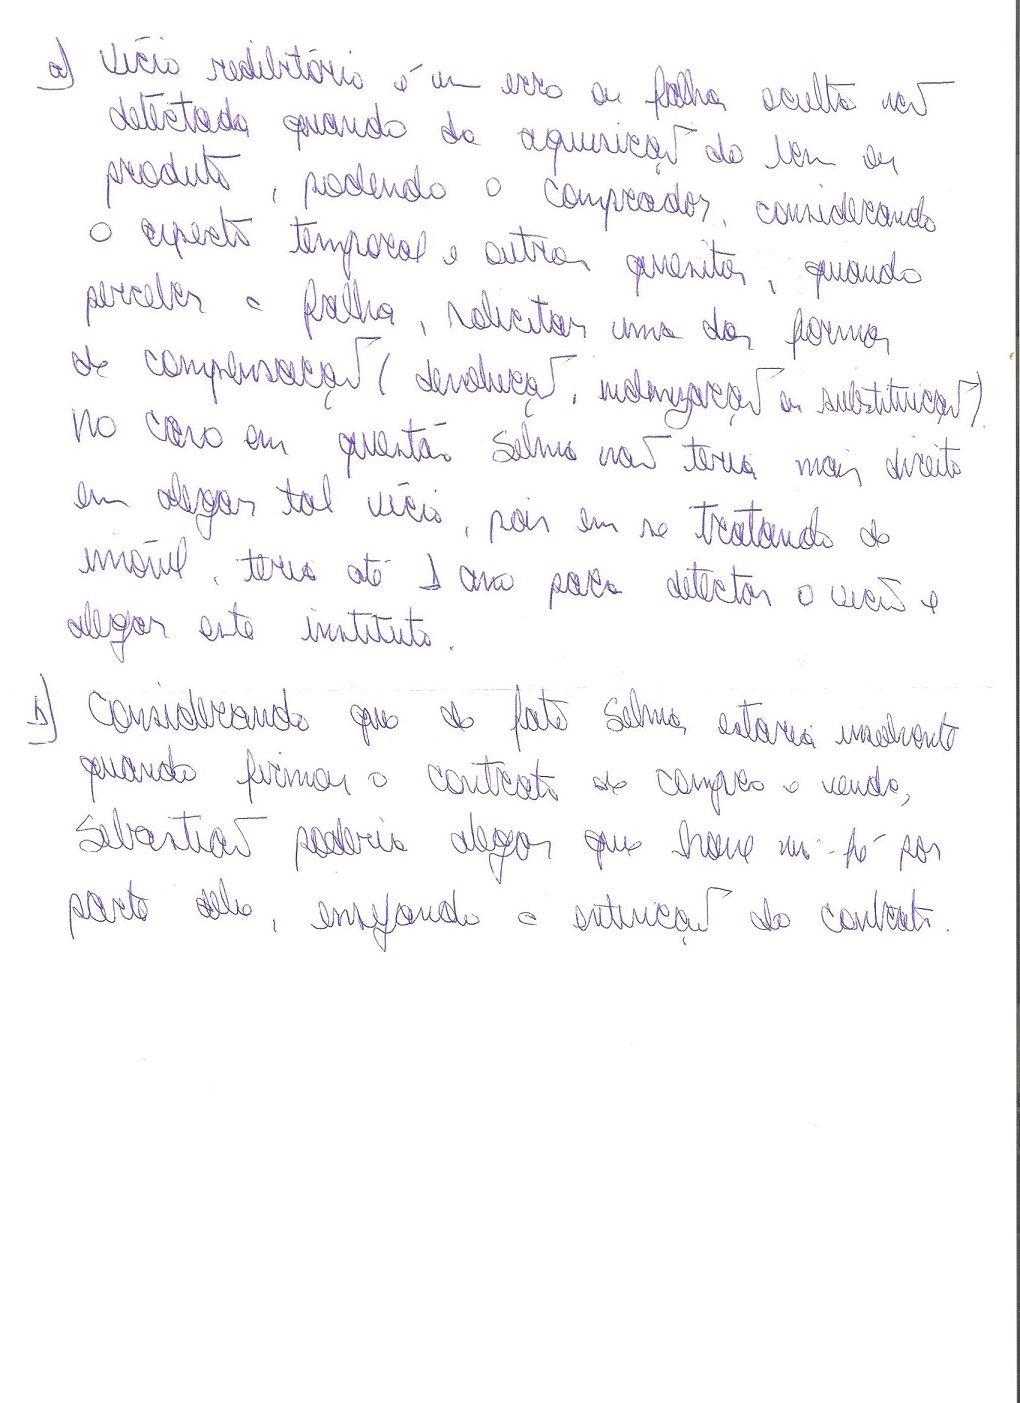 a) Vício redibitório é um erro ou falha oculta não
detectada quando da aquisição do bem ou
produto, podendo o comprador, considerando
o aspecto temporal e outros quesitos, quando
perceber a falha, solicitar uma das formas
de compensação (devolução, indenização ou substituição).
No caso em questão Selma não teria mais direito
em alegar tal vício, pois em se tratando de
imóvel, teria até 1 ano para detectar o vício e
alegar este instituto.
b) Considerando que de fato Selma estaria insolvente
quando firmou o contrato de compra e venda,
Sebastião poderia alegar que houve má-fé por
parte dela, ensejando a extinção do contrato.